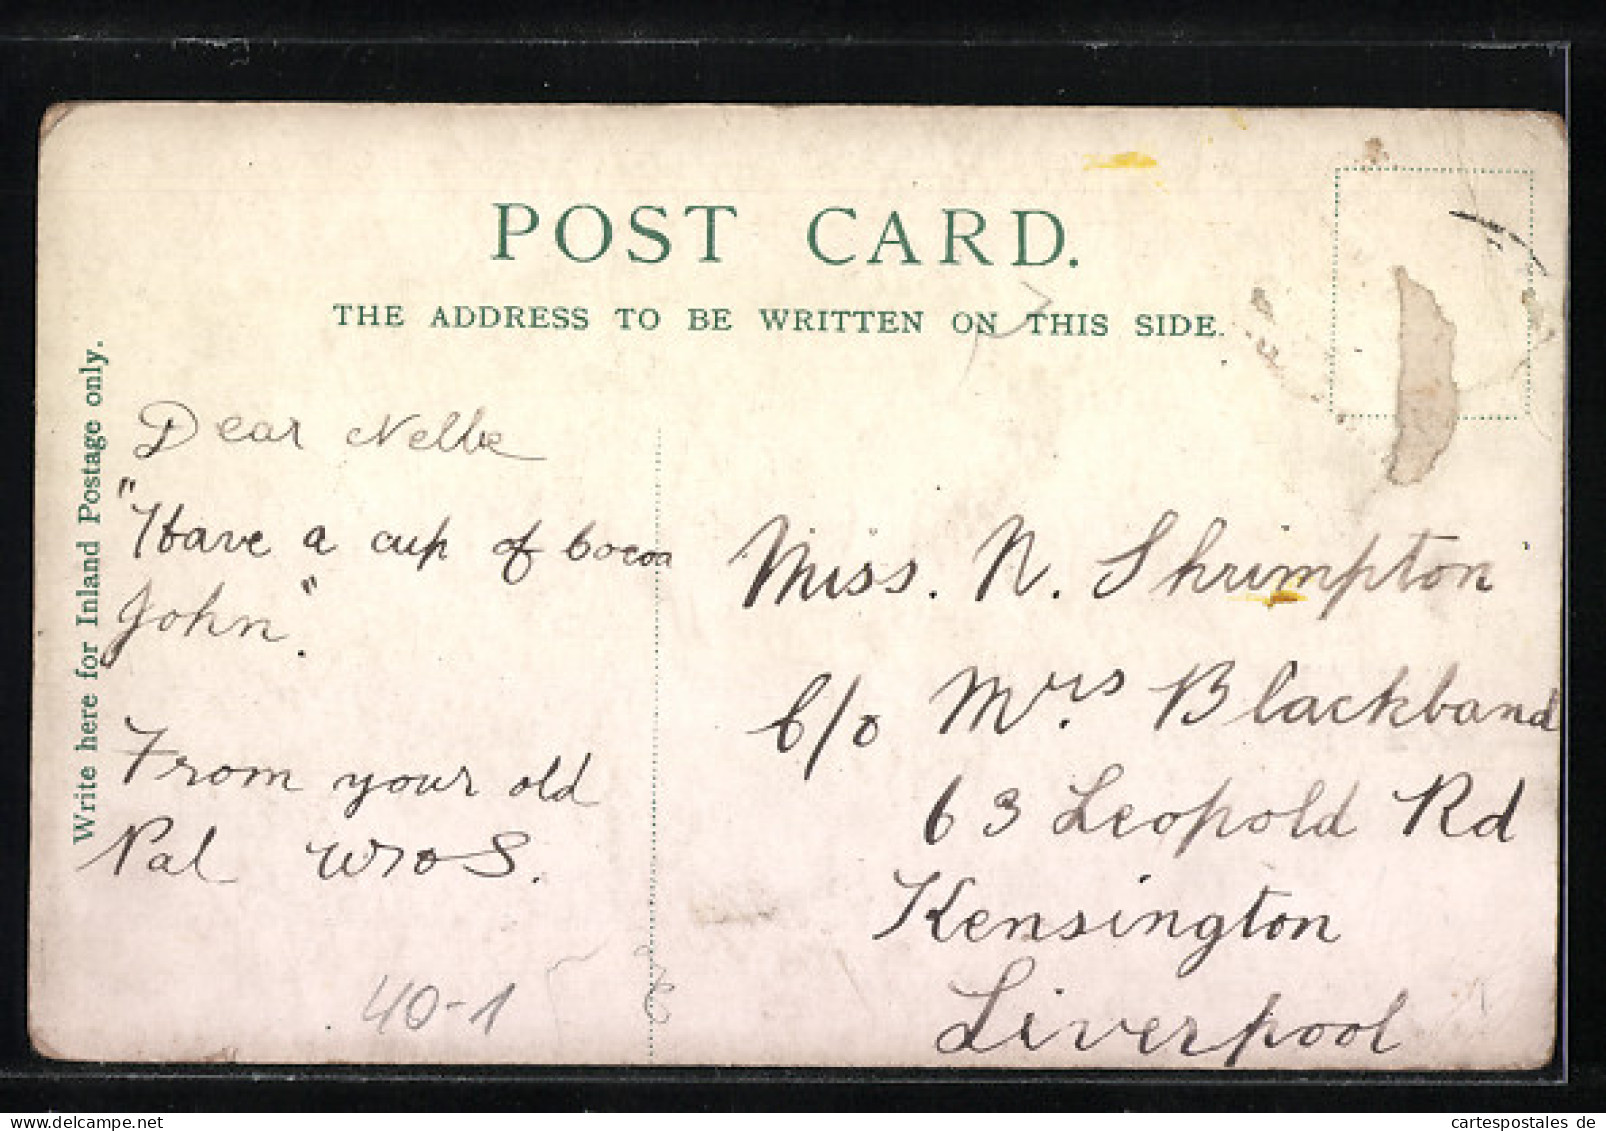 POST CARD.
THE ADDRESS TO BE WRITTEN ON THIS SIDE.
Write here for Inland Postage only.
Dear Nellie
"Have a cup of Cocoa
John".
From your old
Pal
Miss. N. Shrimpton
C/o Mrs Blackband
63 Leopold Rd
Kensington
Liverpool
40-1
cartespostales de